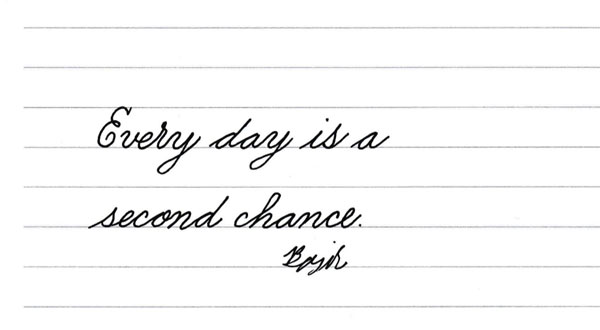 Every day is a
second chance.